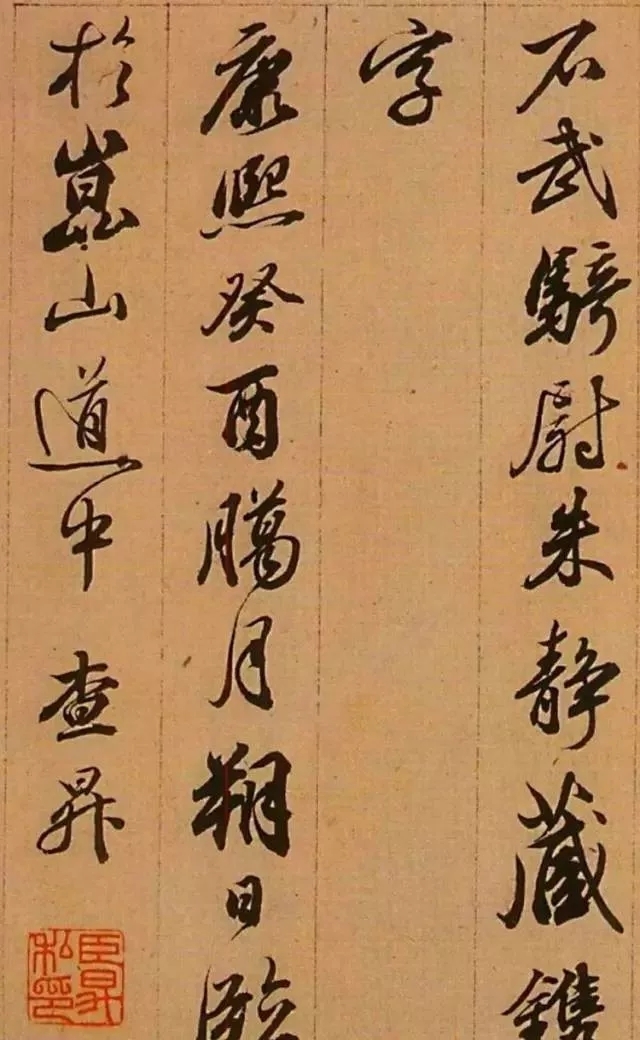 石武騎尉朱静藏鐫
字
康熙癸酉臈月朔日臨
於嵓山道中 查昇
臣昇私印